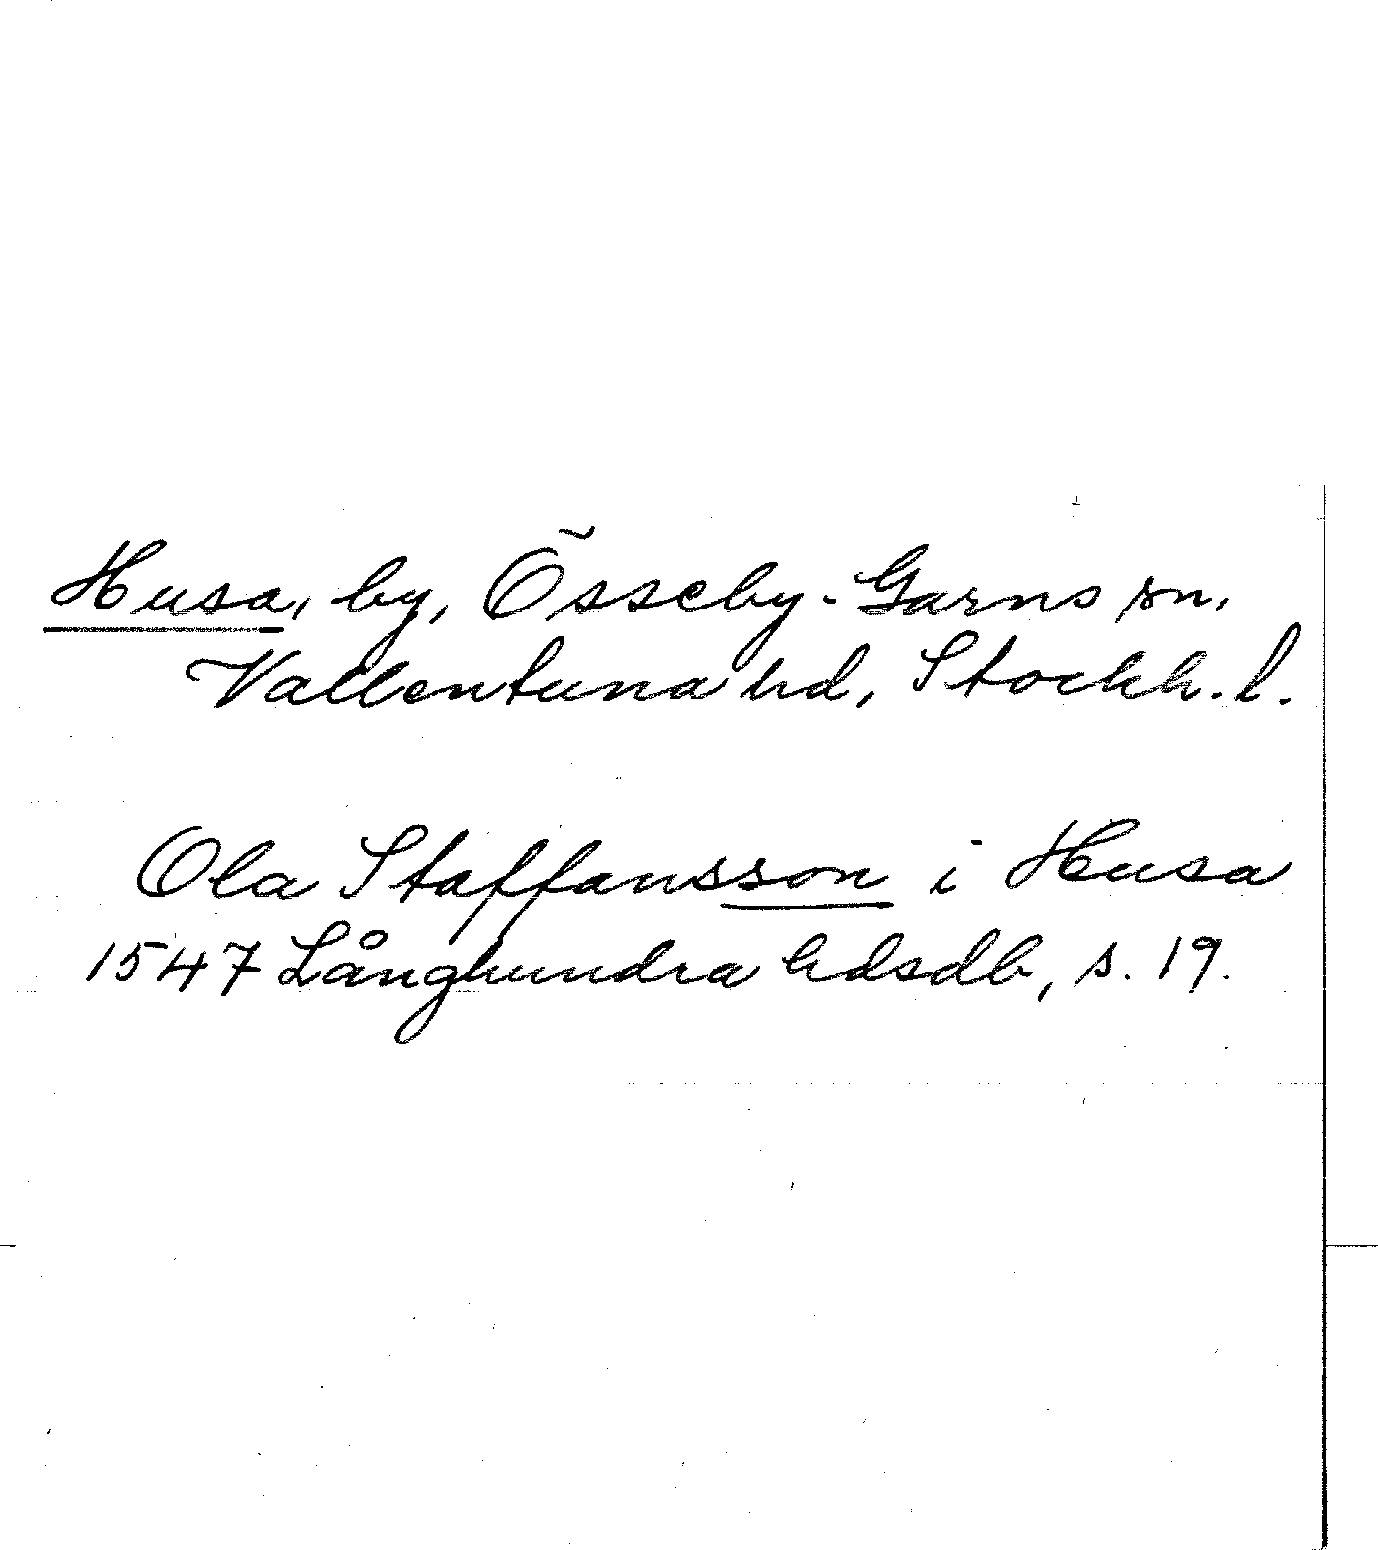 Husa, by, Össeby-Garns sn,
Vallentuna hd, Stockh. l.
Ola Staffansson i Husa
1547 Långhundra hdsdb, s. 19.